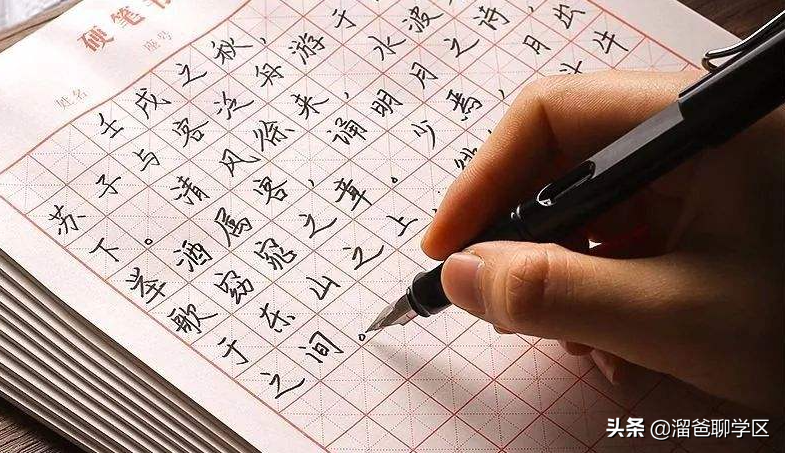 硬笔
姓名
座号
壬戌之秋，
苏子与客泛舟游于
下。清风徐来，水波
举酒属客，诵明月之诗，
歌窈窕之章。少焉，月出
于东山之上，斗牛
之间。
头条 @溜爸聊学区